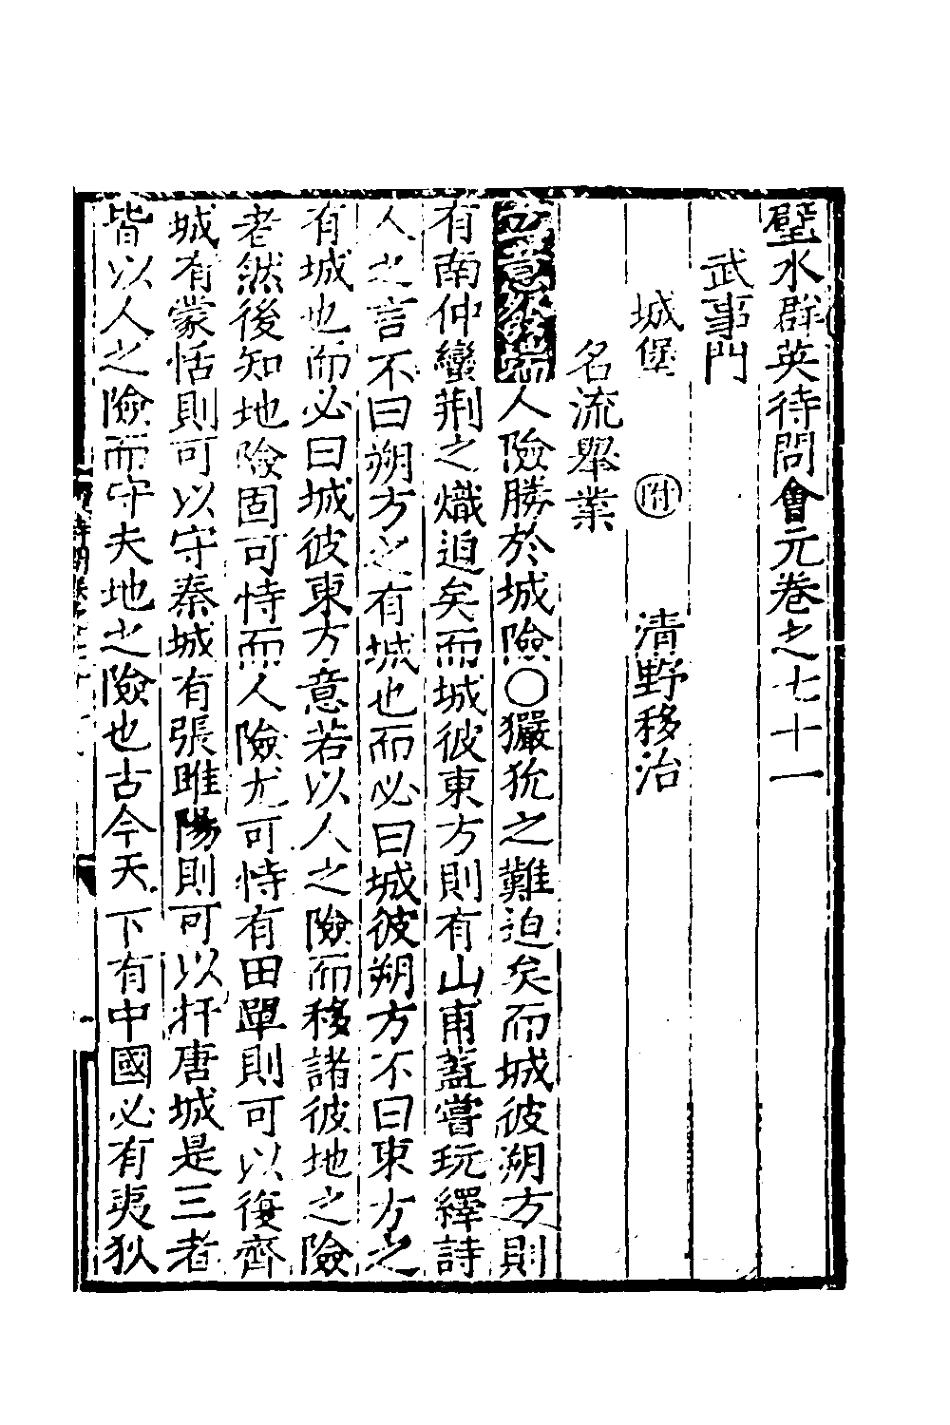 璧水群英待問會元卷之七十一
武事門
城堡 附 清野移治
名流舉業
立意發端人險勝於城險○玁狁之難迫矣而城彼朔方則
有南仲蠻荆之熾迫矣而城彼東方則有山甫葢嘗玩繹詩
人之言不曰朔方之有城也而必曰城彼朔方不曰東方之
有城也而必曰城彼東方意若以人之險而移諸彼地之險
者然後知地險固可恃而人險尤可恃有田單則可以復齊
城有蒙恬則可以守秦城有張睢陽則可以扞唐城是三者
皆以人之險而守夫地之險也古今天下有中國必有夷狄